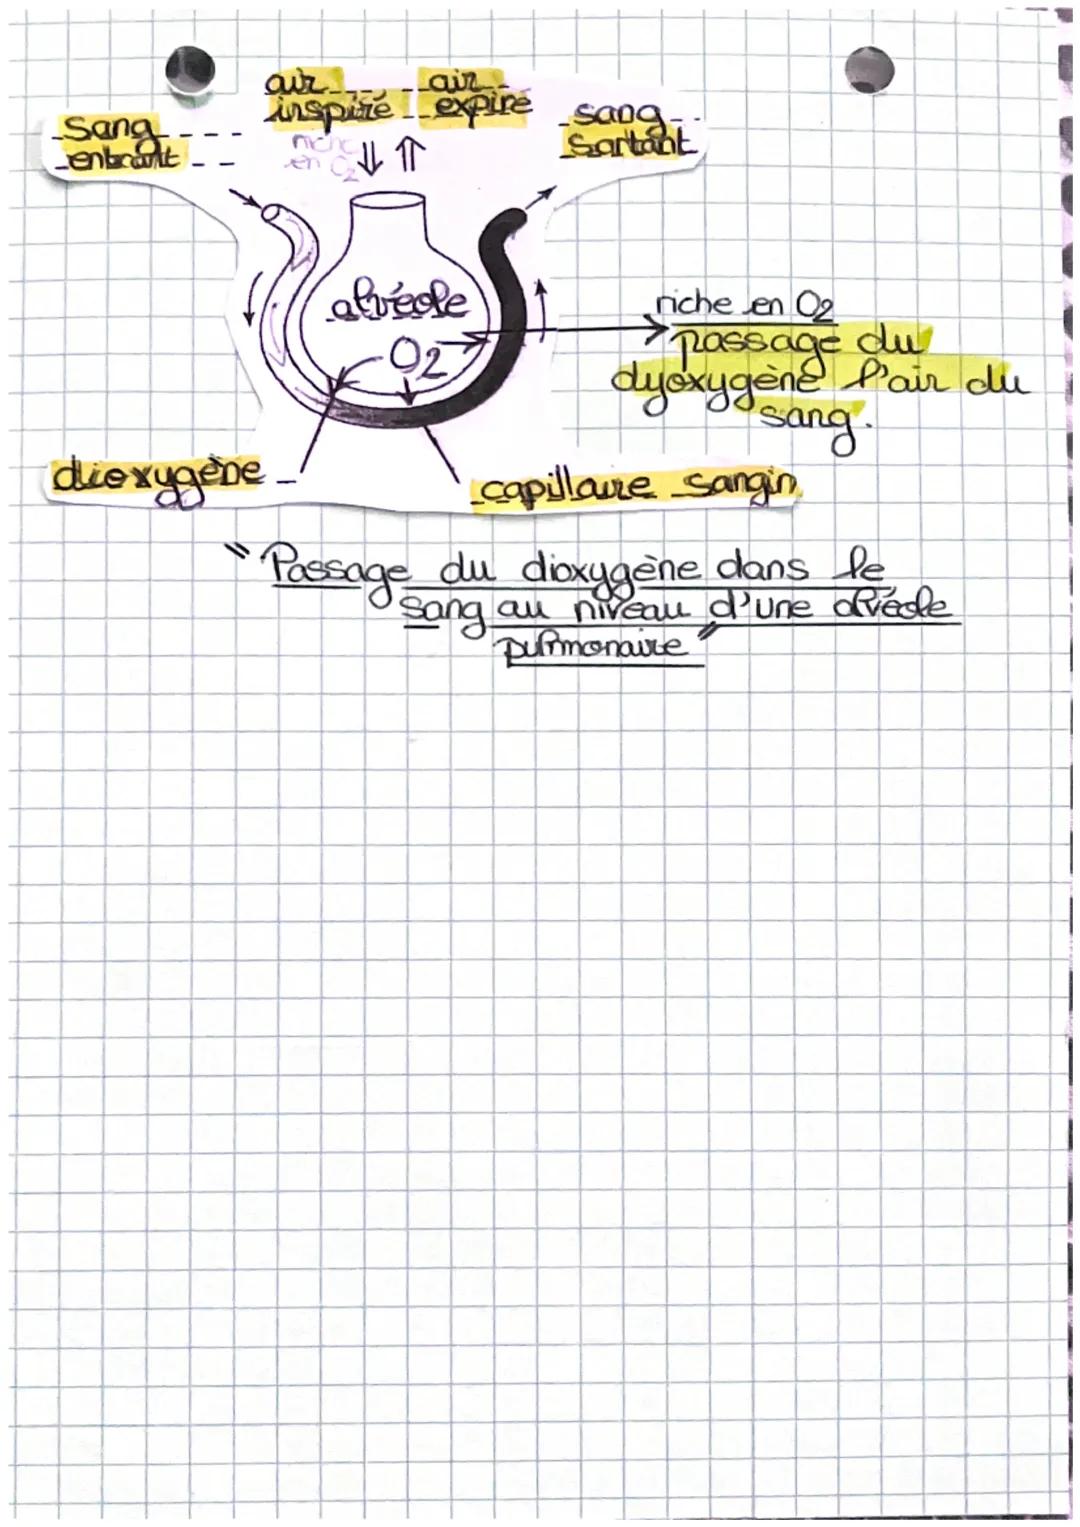 air
inspiré
air
expiré
Sang
entrant
sang
Sortant
riche
en O2
alvéole
O2
riche en O2
passage du
dyoxygène l'air du
sang.
dioxygène
capillaire sangin
"Passage du dioxygène dans le
sang au niveau d'une alvéole
pulmonaire"